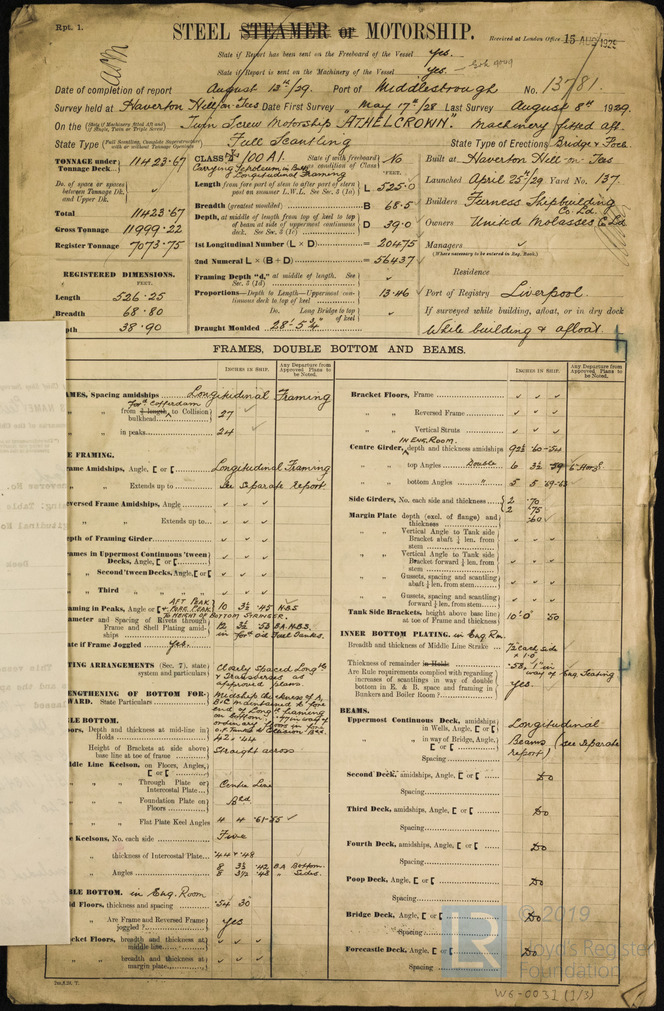 Rpt. 1.
STEEL STEAMER or MOTORSHIP.
Received at London Office 15 AUG 1929
State if Report has been sent on the Freeboard of the Vessel Yes.
State if Report is sent on the Machinery of the Vessel Yes.
Date of completion of report August 13th/29. Port of Middlesbrough No. 13781.
Survey held at Haverton Hill-on-Tees Date First Survey May 17th/28 Last Survey August 8th 1929.
On the Twin Screw Motorship "ATHELCROWN". Machinery fitted aft.
State Type Full Scantling State Type of Erections Bridge & Focs.
TONNAGE under Tonnage Deck 11423.67
Do. of space or spaces between Tonnage Dk. and Upper Dk.
Total 11423.67
Gross Tonnage 11999.22
Register Tonnage 7073.75
REGISTERED DIMENSIONS.
FEET.
Length 526.25
Breadth 68.80
pth 38.90
CLASS 100 A1. State if with freeboard condition of Class No
Carrying Petroleum in Bulk
Longitudinal Framing
FEET.
Length from fore part of stem to after part of stern post on summer L.W.L. See Sec. 3 (1c) L 525.0
Breadth (greatest moulded) B 68.5
Depth, at middle of length from top of keel to top of beam at side of uppermost continuous deck. See Sec. 3 (1c) D 39.0
1st Longitudinal Number (L × D) = 20475
2nd Numeral L × (B + D) = 56437
Framing Depth "d," at middle of length. See Sec. 3 (1d)
Proportions—Depth to Length—Uppermost continuous deck to top of keel 13.46
Do. Long Bridge to top of keel
Draught Moulded 28'-5 3/4"
Built at Haverton Hill-on-Tees
Launched April 25th/29 Yard No. 137.
Builders Furness Shipbuilding Co. Ld.
Owners United Molasses C. Ld
Managers
(Where necessary to be entered in Reg. Book.)
Residence
Port of Registry Liverpool.
If surveyed while building, afloat, or in dry dock
While building & afloat.
FRAMES, DOUBLE BOTTOM AND BEAMS.
INCHES IN SHIP. Any Departure from Approved Plans to be Noted.
INCHES IN SHIP. Any Departure from Approved Plans to be Noted.
AMES, Spacing amidships Longitudinal Framing
for'd Cofferdam
" " from 1/5 length to Collision bulkhead 27
" " in peaks 24
E FRAMING.
rame Amidships, Angle, [ or [ Longitudinal Framing
" " Extends up to See separate report
eversed Frame Amidships, Angle
" " Extends up to
epth of Framing Girder
rames in Uppermost Continuous 'tween Decks, Angle, [ or [
" " Second 'tween Decks, Angle, [ or [
" " Third " "
AFT PEAK
aming in Peaks, Angle or [ & FORE PEAK 10 3½ .45 H.B.S
TO HEIGHT OF BOTTOM STRINGER.
ameter and Spacing of Rivets through Frame and Shell Plating amidships 12 3½ .53 BA.H.B.S.
in for'd Oil Fuel Tanks.
ate if Frame Joggled Yes.
TING ARRANGEMENTS (Sec. 7), state system and particulars Closely spaced Longls & Transverses as approved plans.
ENGTHENING OF BOTTOM FOR-WARD. State Particulars Midship thickness of A, B & C maintained to fore end of Longl framing on bottom.
BLE BOTTOM.
oors, Depth and thickness at mid-line in Holds 42 × .44
Height of Brackets at side above base line at toe of frame Straight across
ddle Line Keelson, on Floors, Angles, [ or [
" " Through Plate or Intercostal Plate Centre Line
" " Foundation Plate on Floors Bhd
" " Flat Plate Keel Angles 4 4 .61-.55
e Keelsons, No. each side Five
" thickness of Intercostal Plate .44 & .48
" Angles 8 3½ .42 BA Bottom.
8 3½ .48 " Sides.
BLE BOTTOM. in Eng. Room
id Floors, thickness and spacing .54 30
" Are Frame and Reversed Frame joggled? Yes
cket Floors, breadth and thickness at middle line
" " breadth and thickness at margin plate
Bracket Floors, Frame
" " Reversed Frame
" " Vertical Struts
IN ENG. ROOM.
Centre Girder, depth and thickness amidships 92½ .60-.54
" " top Angles Double 6 3½ .59
" " bottom Angles " 5 5 .69-.63
Side Girders, No. each side and thickness 2 .70
2 .75
Margin Plate depth (excl. of flange) and thickness .60
" " Vertical Angle to Tank side Bracket abaft ¼ len. from stem
" " Vertical Angle to Tank side Bracket forward ¼ len. from stem
" " Gussets, spacing and scantling abaft ¼ len. from stem
" " Gussets, spacing and scantling forward ¼ len. from stem
Tank Side Brackets, height above base line at toe of Frame and thickness 10'-0" .50
INNER BOTTOM PLATING. in Eng Rm.
Breadth and thickness of Middle Line Strake 72 Each side × 1.0
Thickness of remainder in Holds .58, 1" in way of Eng Seating
Are Rule requirements complied with regarding increases of scantlings in way of double bottom in E. & B. space and framing in Bunkers and Boiler Room? Yes.
BEAMS.
Uppermost Continuous Deck, amidships in Wells, Angle, [ or [ Longitudinal
" " in way of Bridge, Angle, [ or [ Beams (see separate report)
Spacing
Second Deck, amidships, Angle, [ or [ Do
Spacing
Third Deck, amidships, Angle, [ or [ Do
Spacing
Fourth Deck, amidships, Angle, [ or [ Do
Spacing
Poop Deck, Angle, [ or [ Do
Spacing
Bridge Deck, Angle, [ or [ Do
Spacing
Forecastle Deck, Angle, [ or [ Do
Spacing
LR
© 2019
Lloyd's Register
Foundation
W6-0031 (1/3)